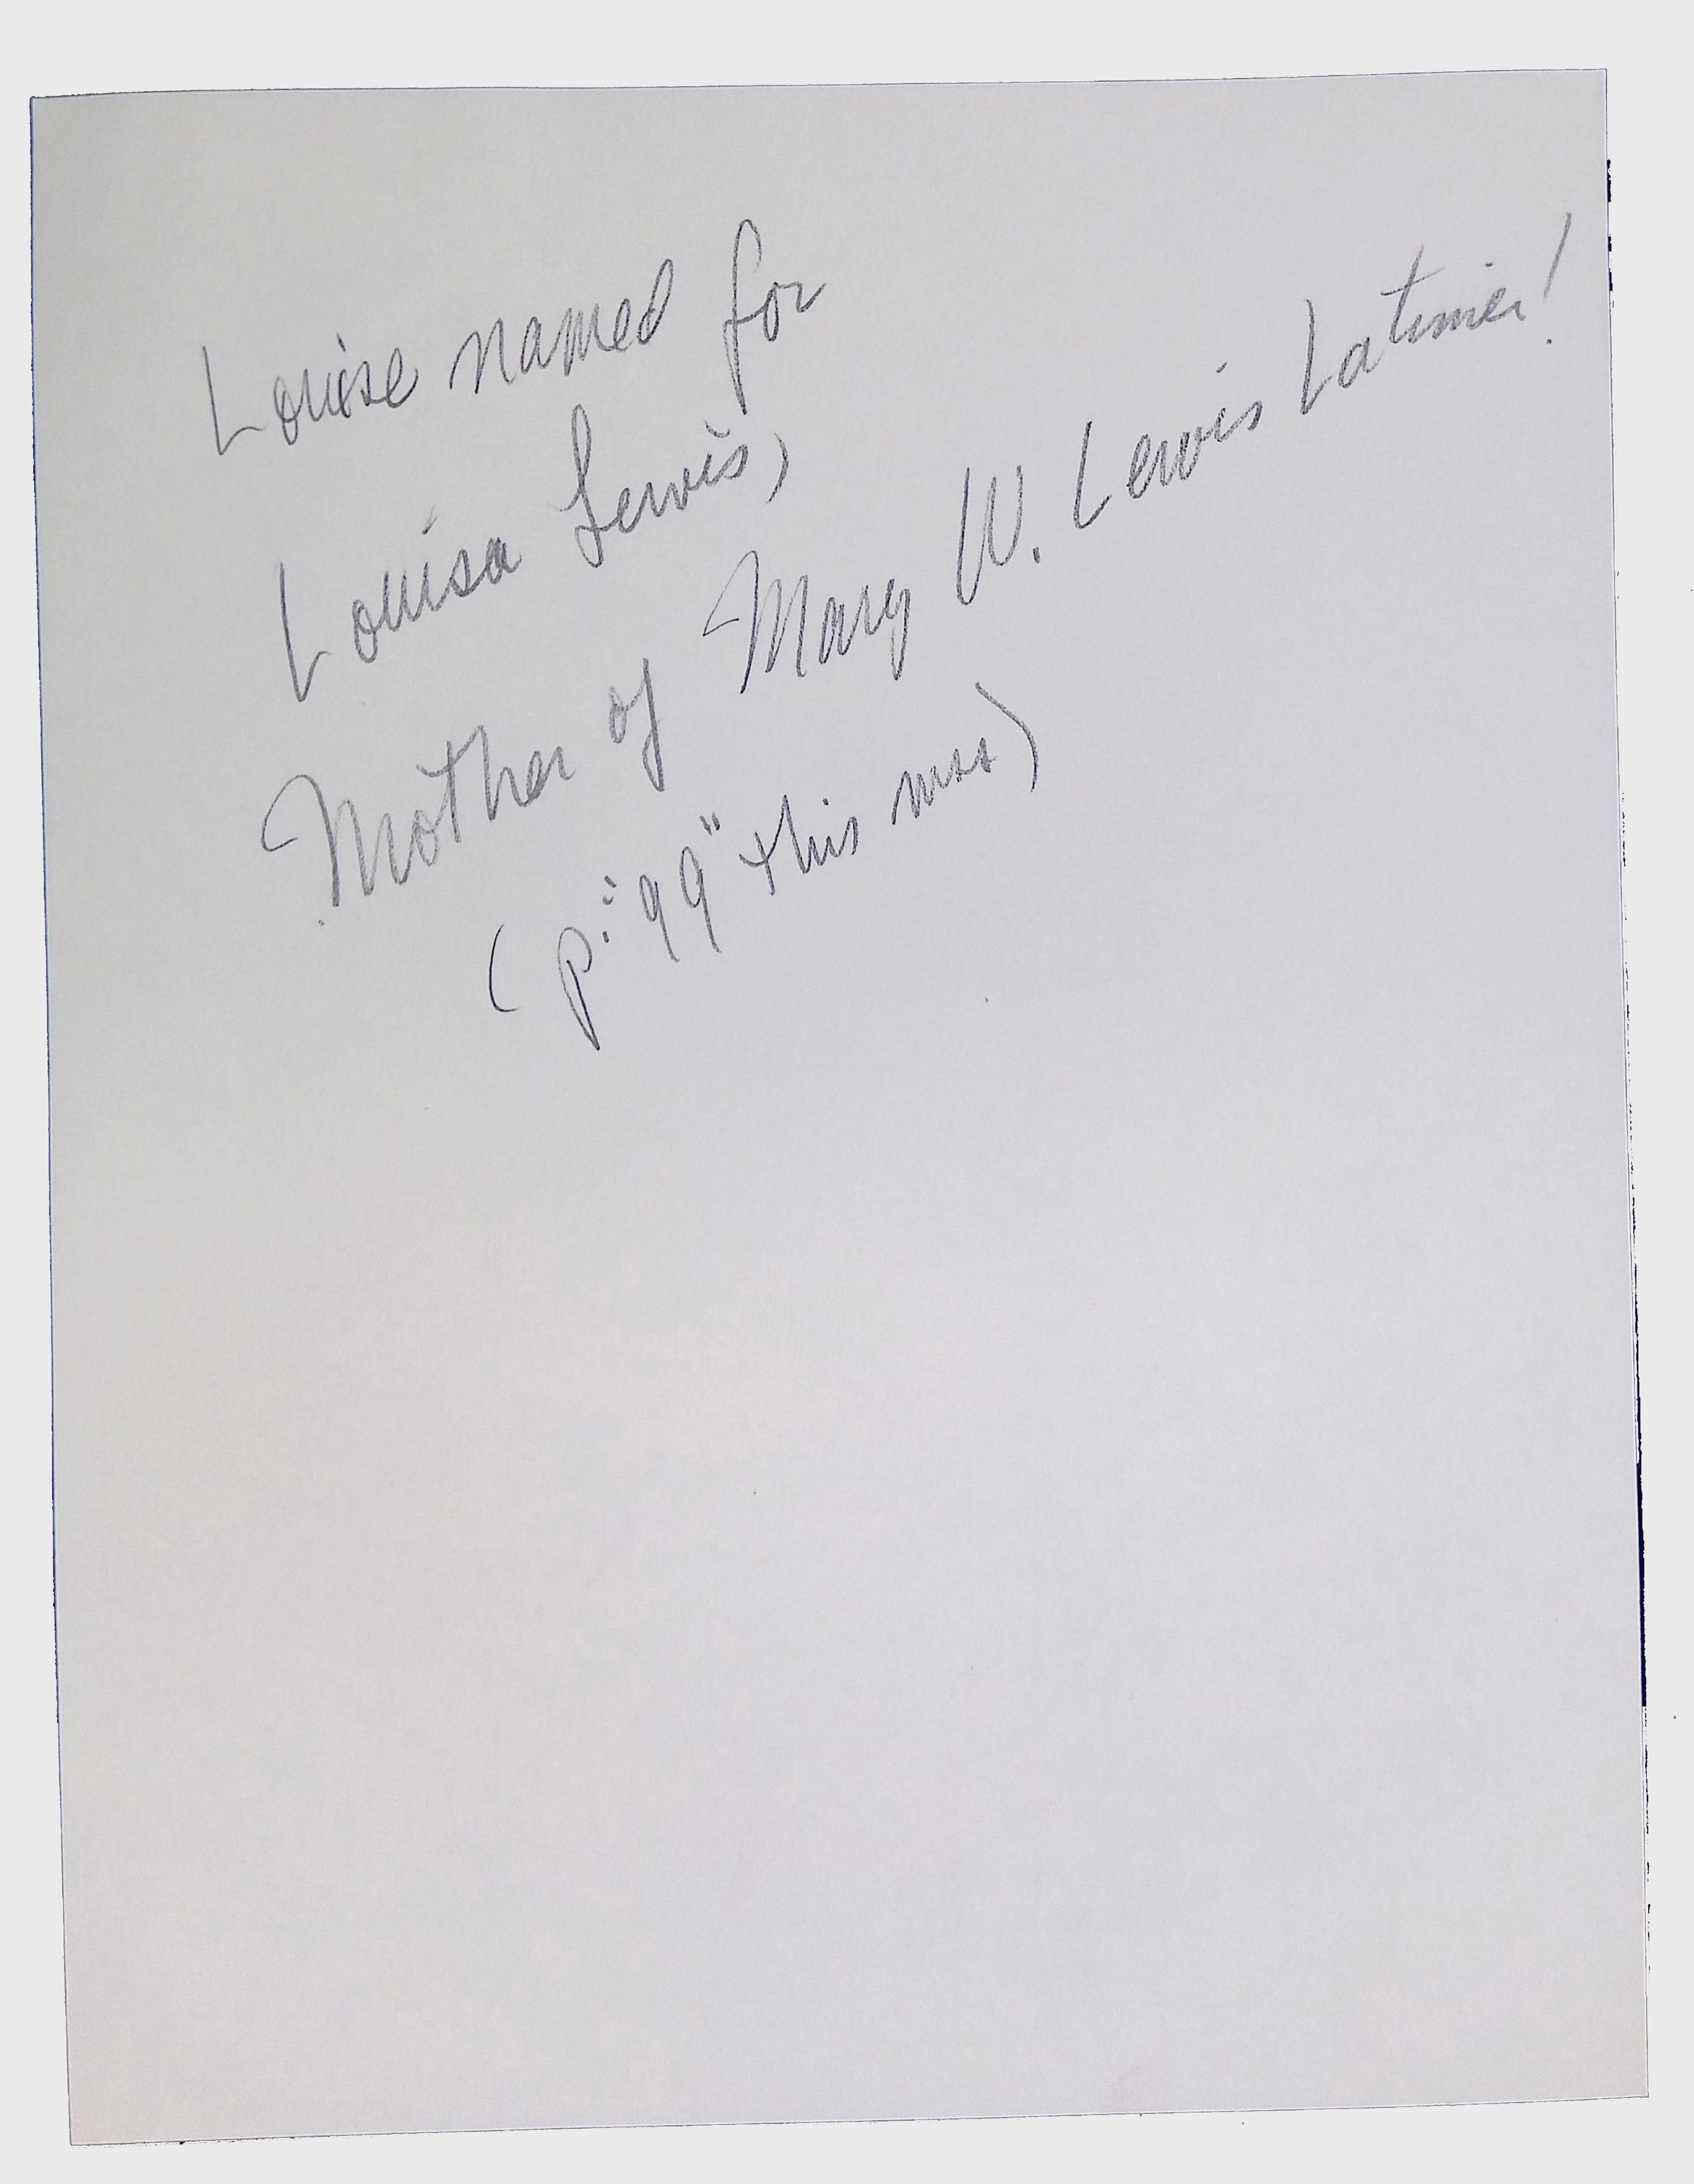 Louise named for
Louisa Lewis,
Mother of Mary W. Lewis Latimer!
(p. "99" this mss)